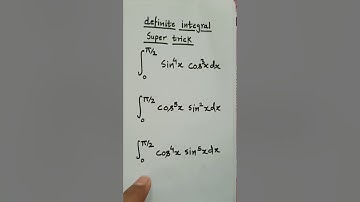 definite integral
Super trick
∫₀^π/2 sin⁴x cos³x dx
∫₀^π/2 cos⁵x sin²x dx
∫₀^π/2 cos⁴x sin⁵x dx